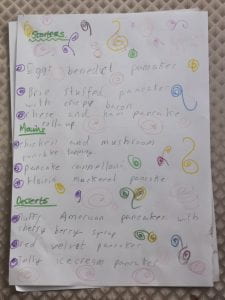 Starters
Eggs benedict pancakes
Brie stuffed pancakes
with crispy bacon
cheese and ham pancake
roll up
Mains
chicken and mushroom
pancake
pancake cannelloni
mackerel pancake
Desserts
Fluffy American pancakes with
cherry berry syrup
Red velvet pancakes
icecream pancakes